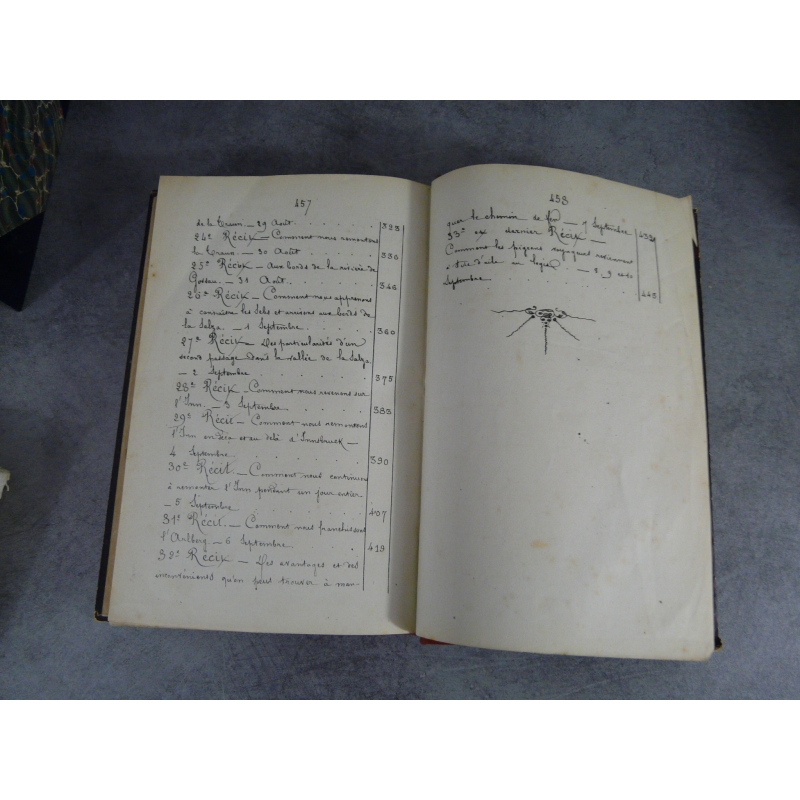 457
de la Traun — 29 Août. . . . . . 323
24e Récit — Comment nous remontons
la Traun — 30 Août . . . . . 336
25e Récit — Aux bords de la rivière de
Gosau. — 31 Août. . . . . . 346
26e Récit — Comment nous apprenons
à connaître les Sels et arrivons aux bords de
la Salza. — 1 Septembre. . . . . 360
27e Récit — Des particularités d'un
second passage dans la vallée de la Salza
— 2 Septembre . . . . . . 375
28e Récit — Comment nous revenons sur
l'Inn. — 3 Septembre. . . . . . 383
29e Récit — Comment nous remontons
l'Inn en deça et au delà d'Innsbruck —
4 Septembre. . . . . . . 390
30e Récit. — Comment nous continuons
à remonter l'Inn pendant un jour entier
— 5 Septembre . . . . . . 407
31e Récit. — Comment nous franchissons
l'Arlberg — 6 Septembre. . . . . 419
32e Récit — Des avantages et des
inconvénients qu'on peut trouver à man-
458
quer le chemin de fer — 7 Septembre 433
33e et dernier Récit —
Comment les pigeons voyageurs reviennent
à tire d'aile au logis — 8, 9 et 10
Septembre . . . . . . . 445